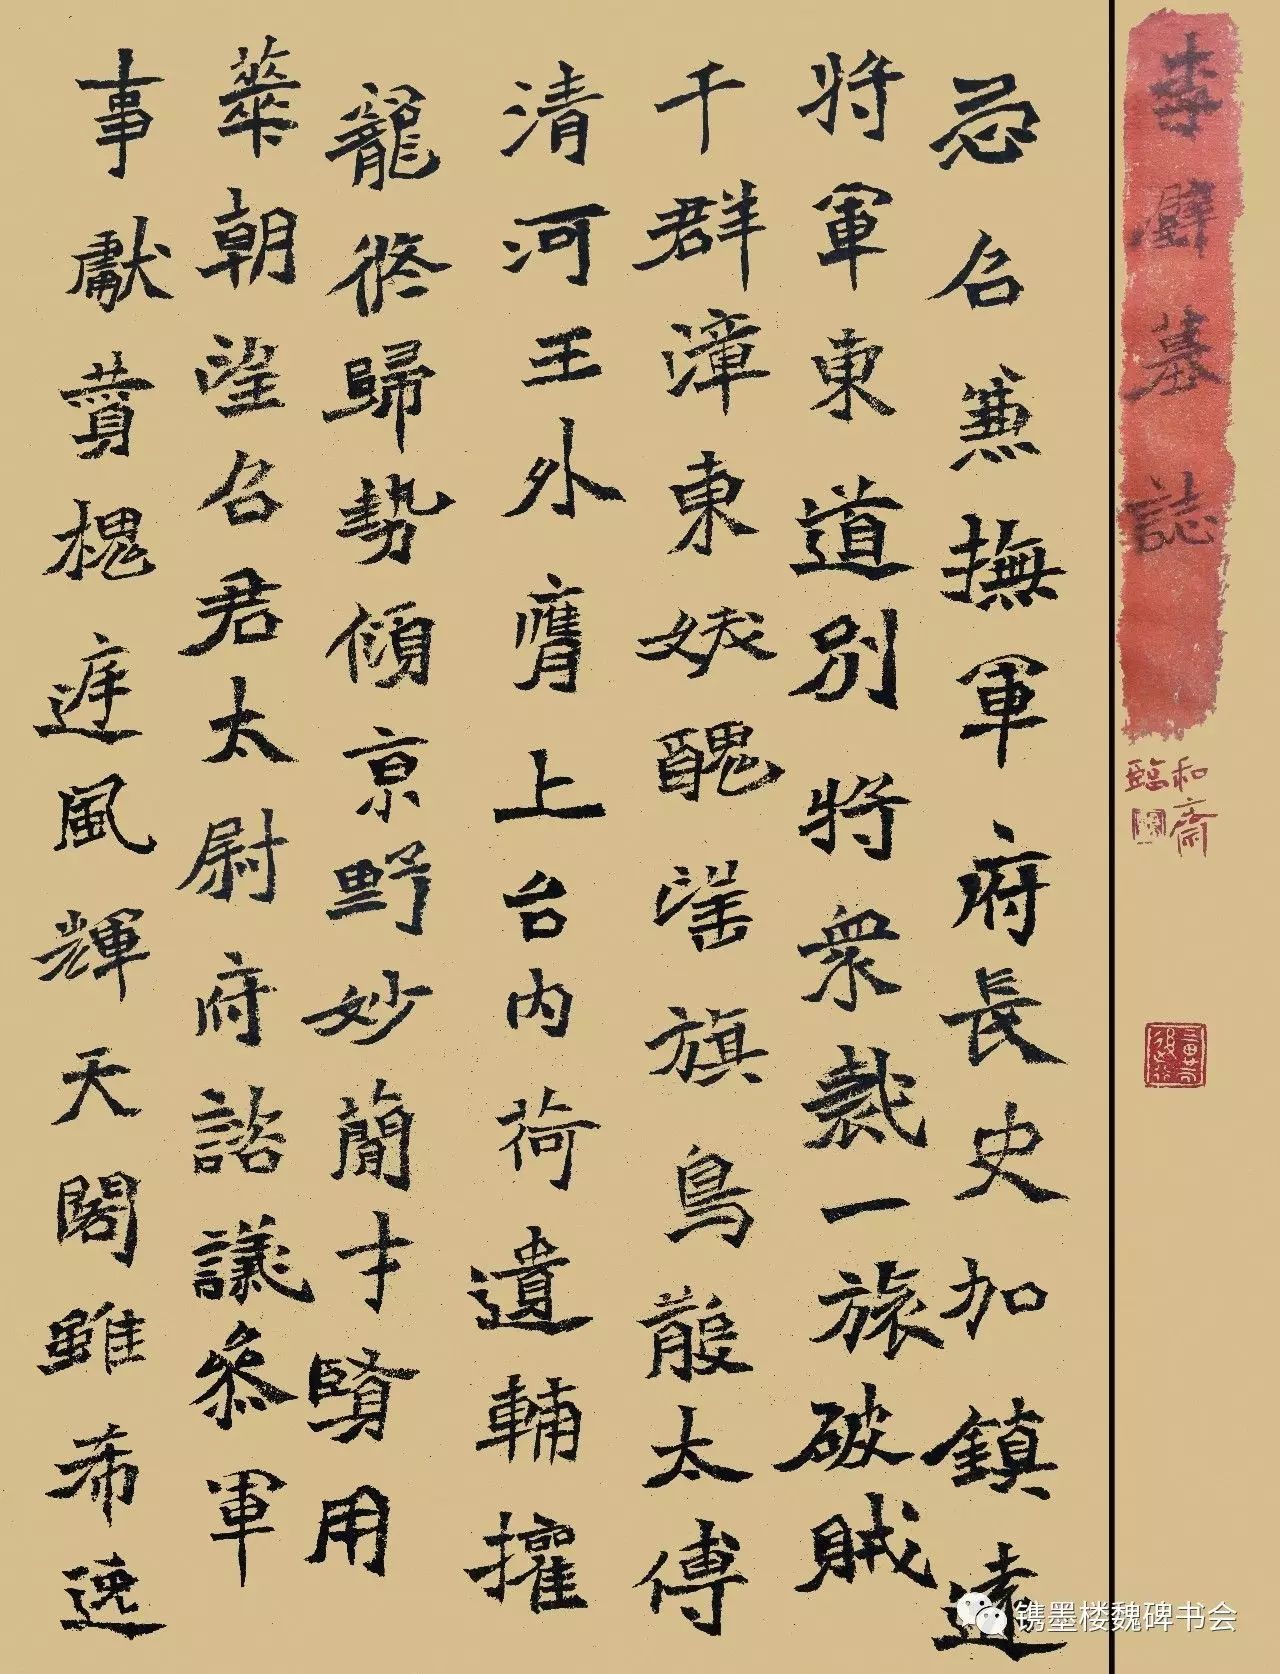 李璧墓誌
和齋
臨
召兼撫軍府長史加鎮遠
將軍東道別將眾裁一旅破賊
千群漳東妖醜望旗鳥散太傅
清河王外膺上台內荷遺輔權
寵攸歸勢傾京野妙簡才賢用
華朝望召君太尉府諮議參軍
事獻贊槐庭風輝天閣雖希逸
镌墨楼魏碑书会